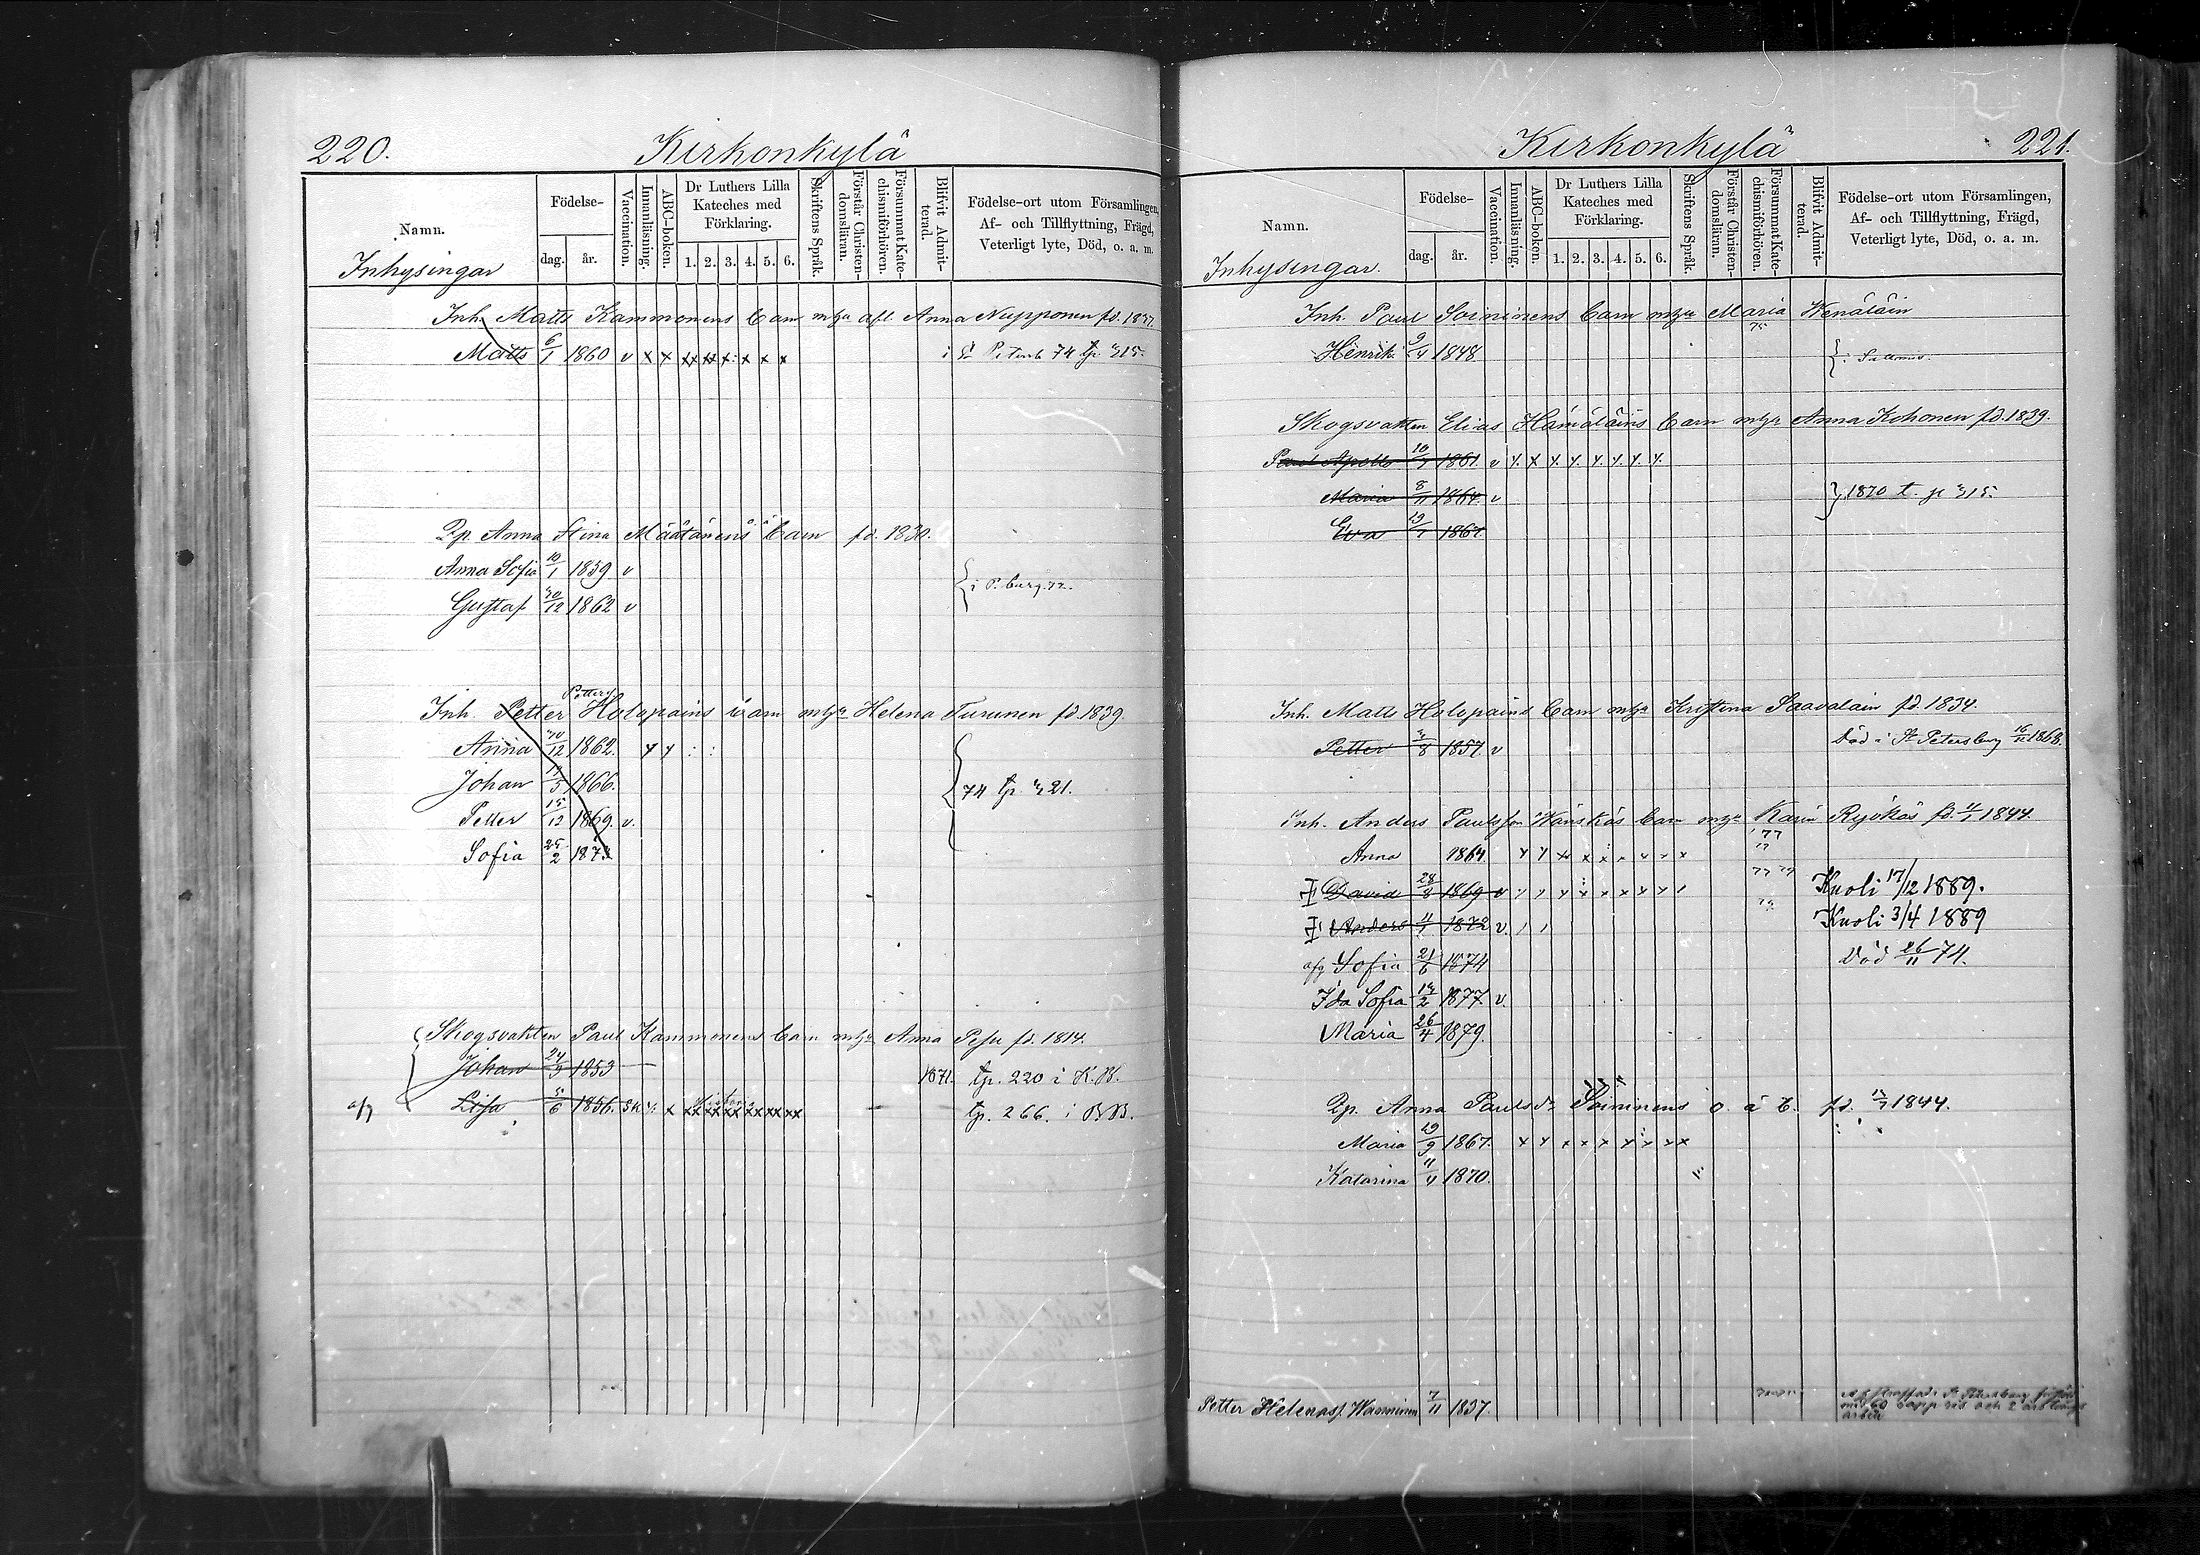 220. Kirkonkylä
Namn.
Inhysingar
Födelse-
dag. år.
Vaccination.
Innanläsning.
ABC-boken.
Dr Luthers Lilla Kateches med Förklaring.
1. 2. 3. 4. 5. 6.
Skriftens Språk.
Förstår Christendomsläran.
Försummat Katechismiförhören.
Blifvit Admitterad.
Födelse-ort utom Församlingen,
Af- och Tillflyttning, Frägd,
Veterligt lyte, Död, o. a. m.
Inh. Matts Kammonens barn m afl. Anna Nupponen fd. 1837.
Matts 6/1 1860 v x x xx xx x x x x 74 tp 315.
Anna Stina Määtänens barn fd. 1830.
Anna Sofia 10/1 1859 v
i P.burg 72.
Gustaf 30/12 1862 v
Inh. Petter Petterss. Holopains barn Helena Turunen fd 1839.
Anna 30/12 1862.
Johan 1866.
74 tp 321.
Petter 15/12 1869. v.
Sofia 25/2 1873
Skogsvakten Paul Kammonens barn Anna Pesu fd. 1814.
Johan 24/9 1853 1871. tp. 220 i K.B.
Lisa 1856. x xx xx xx xx xx xx tp. 266. i B.B.
Kirkonkylä 221.
Namn.
Inhysingar.
Födelse-
dag. år.
Vaccination.
Innanläsning.
ABC-boken.
Dr Luthers Lilla Kateches med Förklaring.
1. 2. 3. 4. 5. 6.
Skriftens Språk.
Förstår Christendomsläran.
Försummat Katechismiförhören.
Blifvit Admitterad.
Födelse-ort utom Församlingen,
Af- och Tillflyttning, Frägd,
Veterligt lyte, Död, o. a. m.
Inh. Paul Soininens barn Maria Wenäläin
75
Henrik 9/4 1848
Skogsvakten Elias Hämäläins barn Anna Kohonen fd. 1839.
Paul Apollo 1861. v
Maria 8/11 1864. v 1870 t. p 315.
Eva 1867
Inh. Matts Holopains barn Kristina Saavalain fd. 1834.
Petter 3/8 1857. v Död i St Petersburg 1868.
Inh. Anders Paulsson Hänskäs barn Karin Ryökäs fd. 4/1 1844.
77
Anna 1864.
David 28/8 1869 v 77 79 Kuoli 17/12 1889.
Anders 11/1 1872 v. Kuoli 3/4 1889
Sofia 21/6 1874 Död 26/11 74.
Ida Sofia 13/2 1877. v
Maria 26/4 1879.
Anna Paulsdr Soininens o. ä. b. fd. 1844.
Maria 19/9 1867.
Katarina 1870.
Petter Helenas. 1837.